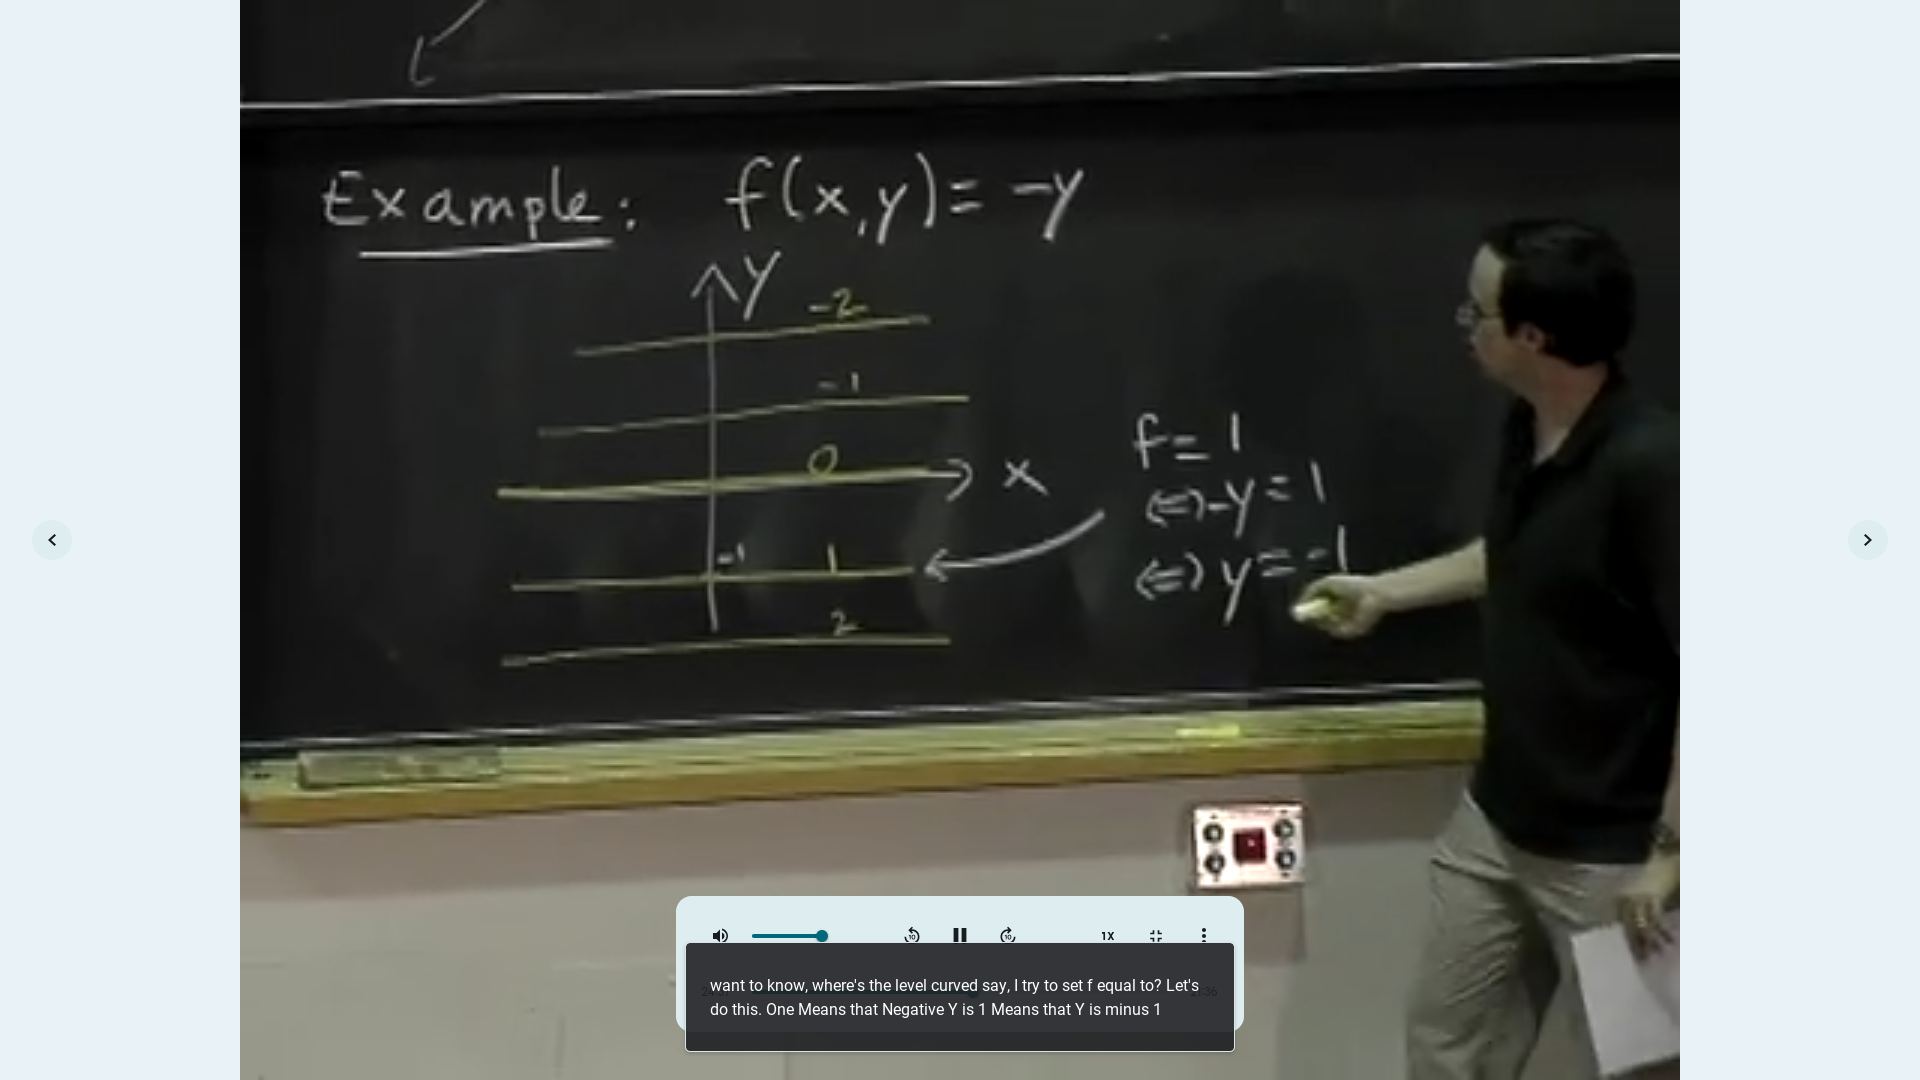 Example: f(x,y) = -y
y
-2
-1
0
x
-1 1
2
f = 1
⇔ -y = 1
⇔ y = -1
10
10
1X
want to know, where's the level curved say, I try to set f equal to? Let's
do this. One Means that Negative Y is 1 Means that Y is minus 1